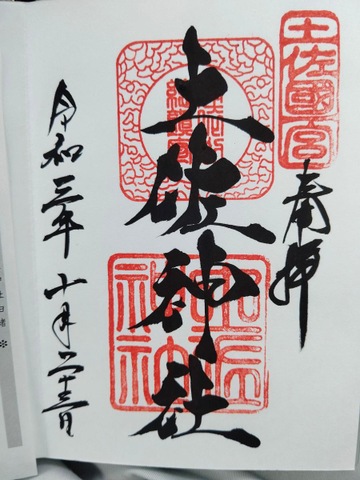 土佐國一宮
奉拝
土佐神社
土佐神社
令和三年十月二十三日